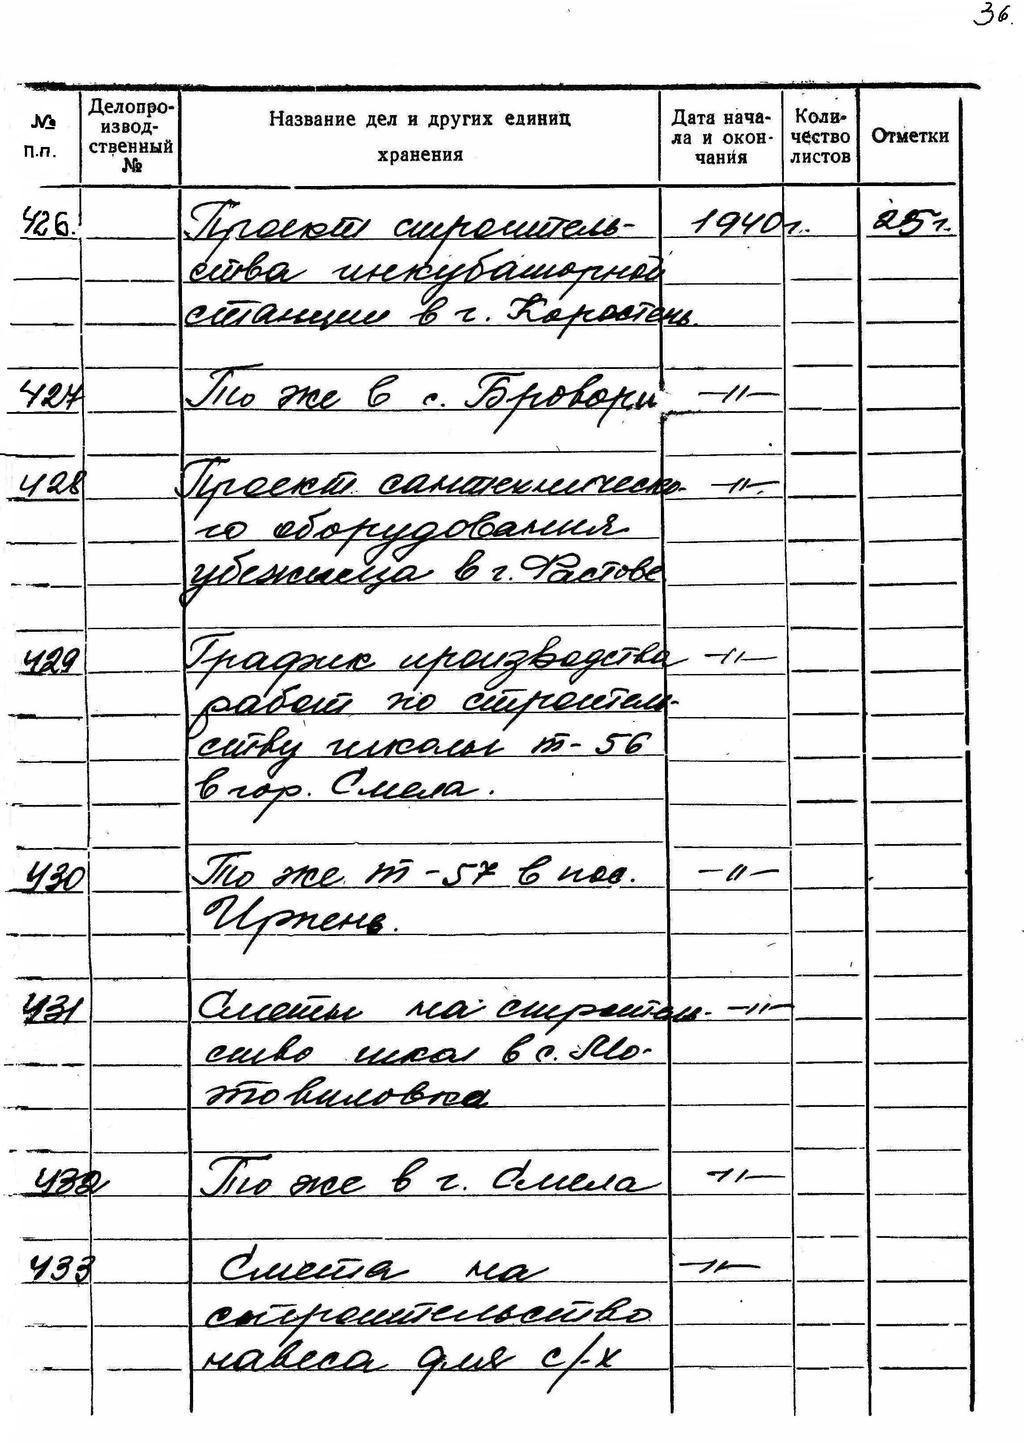 36.
№ п.п.
Делопро-
извод-
ственный
№
Название дел и других единиц
хранения
Дата нача-
ла и окон-
чания
Коли-
чество
листов
Отметки
426. Проект строитель- 1940 г. 25 г.
ства инкубаторной
станции в г. Коростень.
427 То же в с. Бровари —"—
428 Проект сантехническо- —"—
го оборудования
убежища в г. Фастове
429 График производства —"—
работ по строитель-
ству школы т-56
в гор. Смела.
430 То же т-57 в пос. —"—
Ирпень.
431 Сметы на строитель- —"—
ство школ в с. Мо-
товиловка
432 То же в г. Смела —"—
433 Смета на —"—
строительство
навеса для с/-х